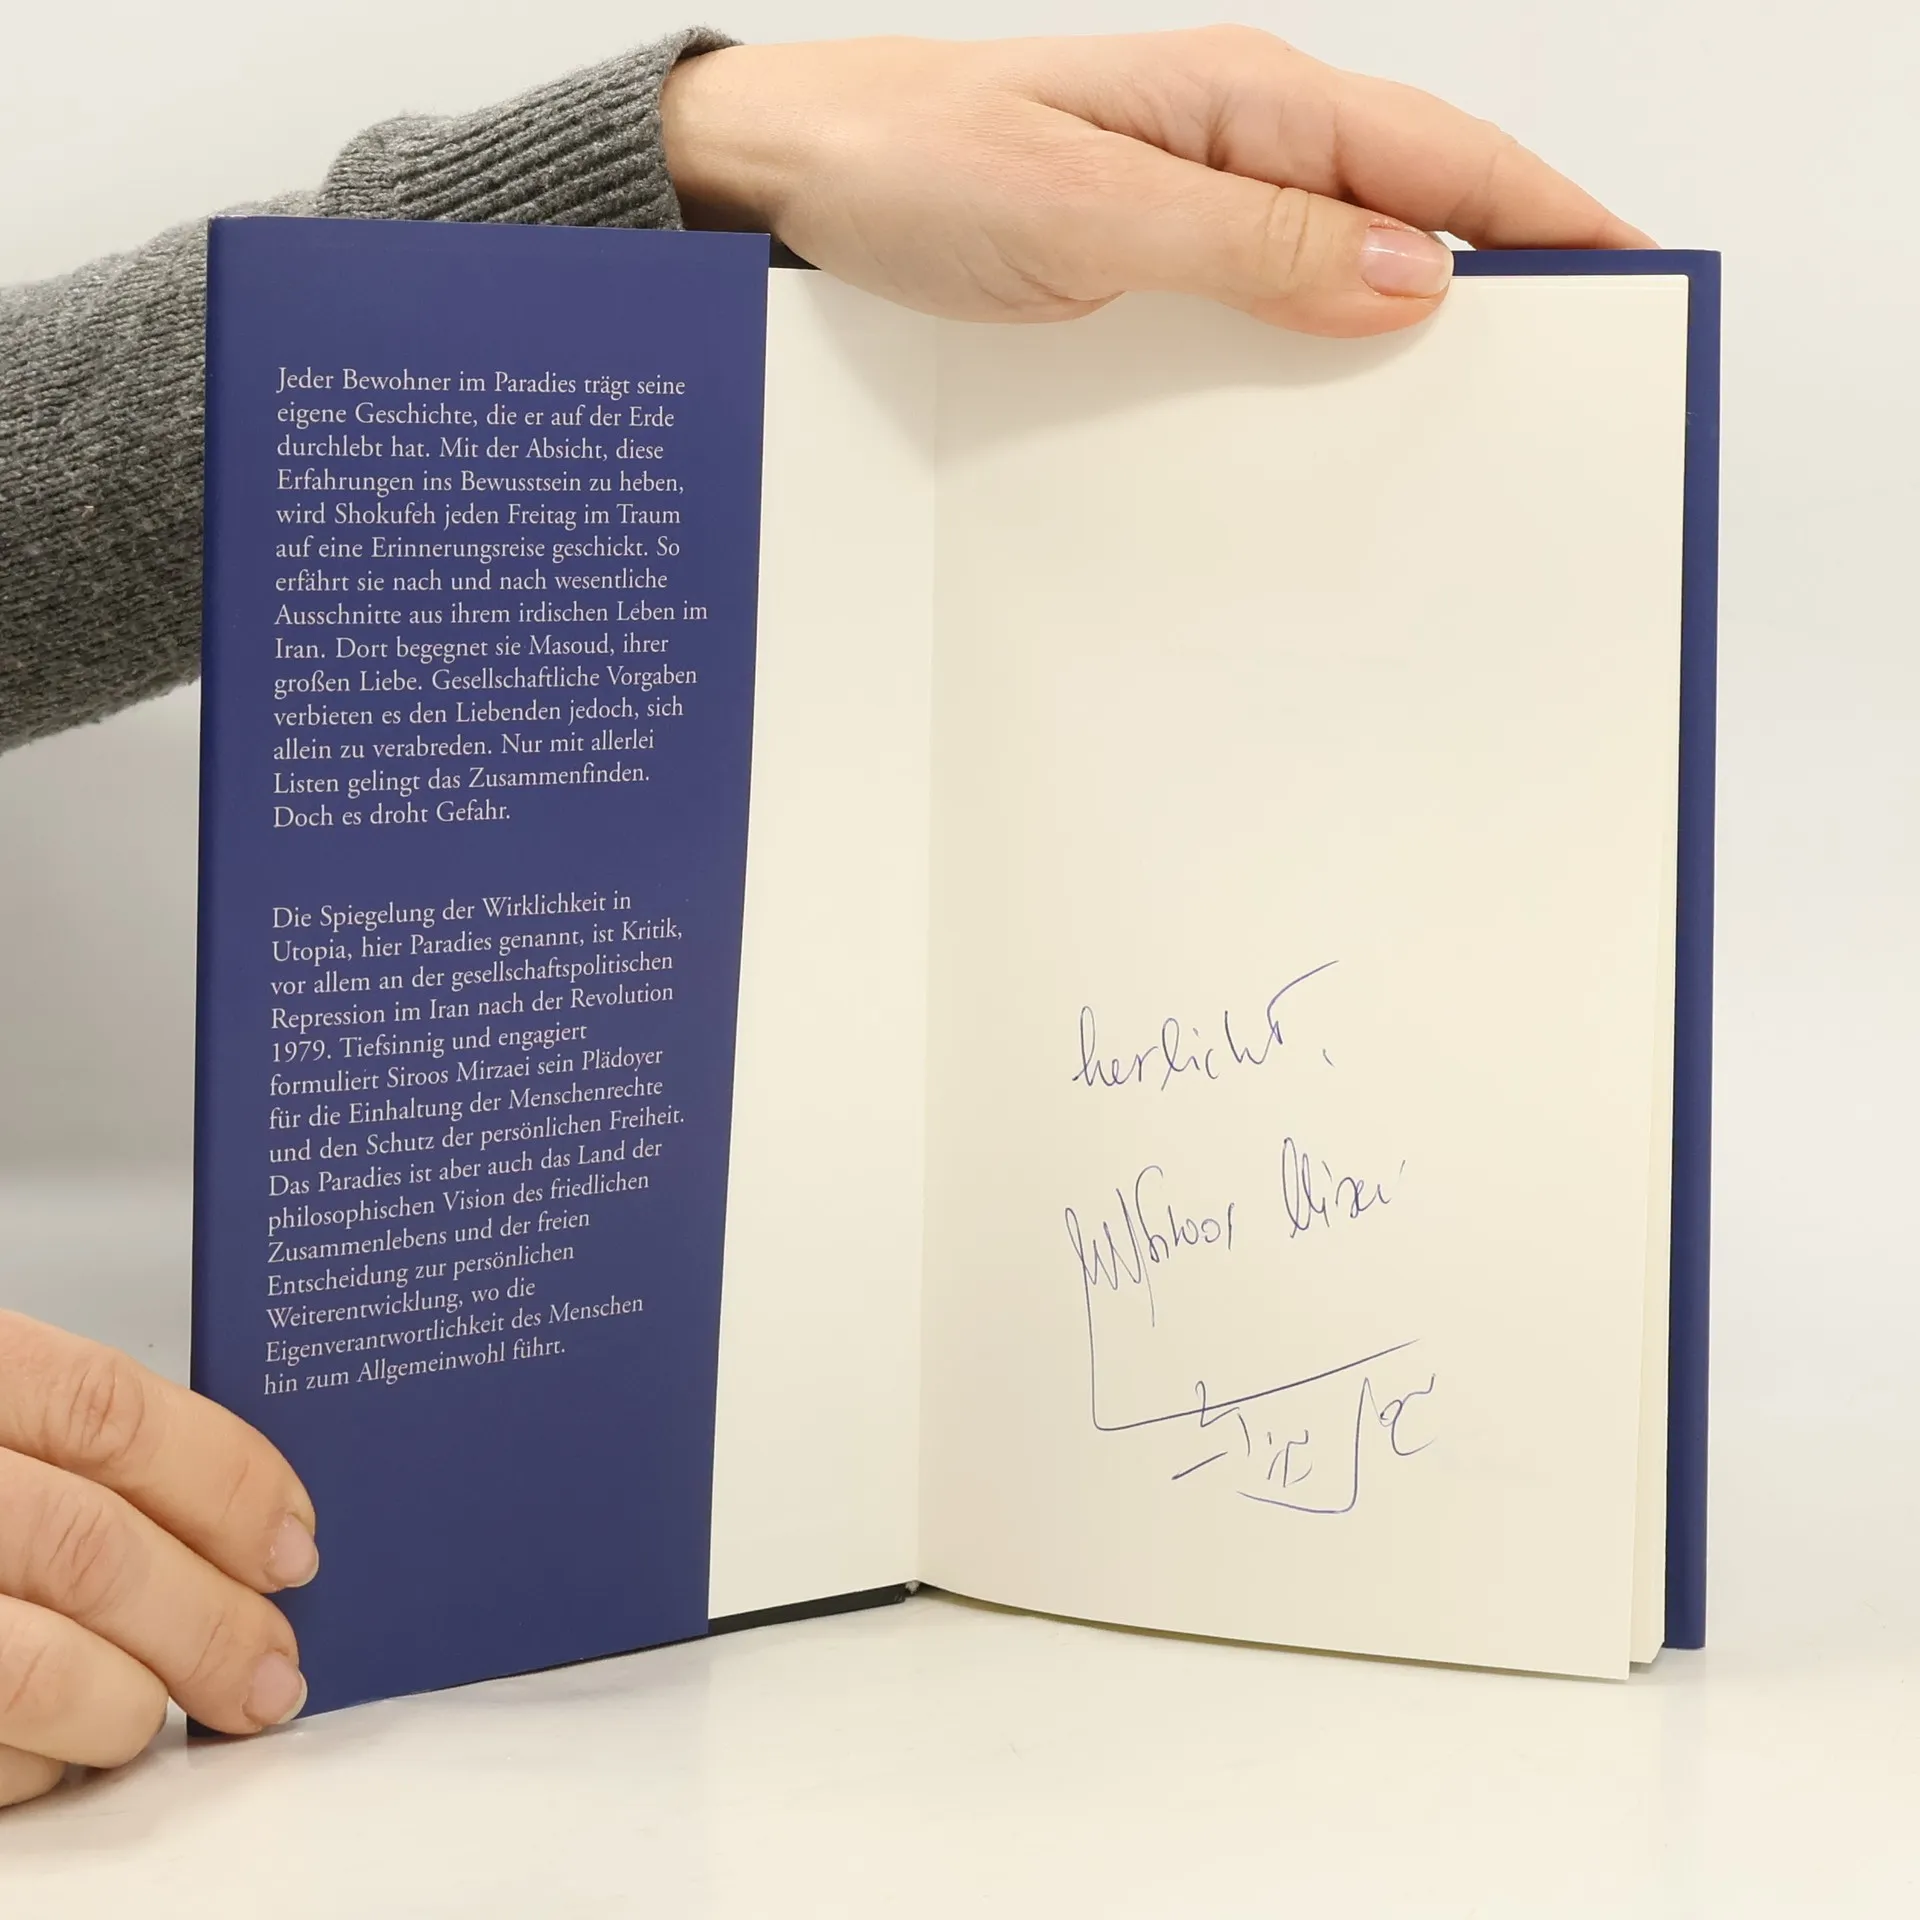 Jeder Bewohner im Paradies trägt seine
eigene Geschichte, die er auf der Erde
durchlebt hat. Mit der Absicht, diese
Erfahrungen ins Bewusstsein zu heben,
wird Shokufeh jeden Freitag im Traum
auf eine Erinnerungsreise geschickt. So
erfährt sie nach und nach wesentliche
Ausschnitte aus ihrem irdischen Leben im
Iran. Dort begegnet sie Masoud, ihrer
großen Liebe. Gesellschaftliche Vorgaben
verbieten es den Liebenden jedoch, sich
allein zu verabreden. Nur mit allerlei
Listen gelingt das Zusammenfinden.
Doch es droht Gefahr.
Die Spiegelung der Wirklichkeit in
Utopia, hier Paradies genannt, ist Kritik,
vor allem an der gesellschaftspolitischen
Repression im Iran nach der Revolution
1979. Tiefsinnig und engagiert
formuliert Siroos Mirzaei sein Plädoyer
für die Einhaltung der Menschenrechte
und den Schutz der persönlichen Freiheit.
Das Paradies ist aber auch das Land der
philosophischen Vision des friedlichen
Zusammenlebens und der freien
Entscheidung zur persönlichen
Weiterentwicklung, wo die
Eigenverantwortlichkeit des Menschen
hin zum Allgemeinwohl führt.
herlicht.
Siroos